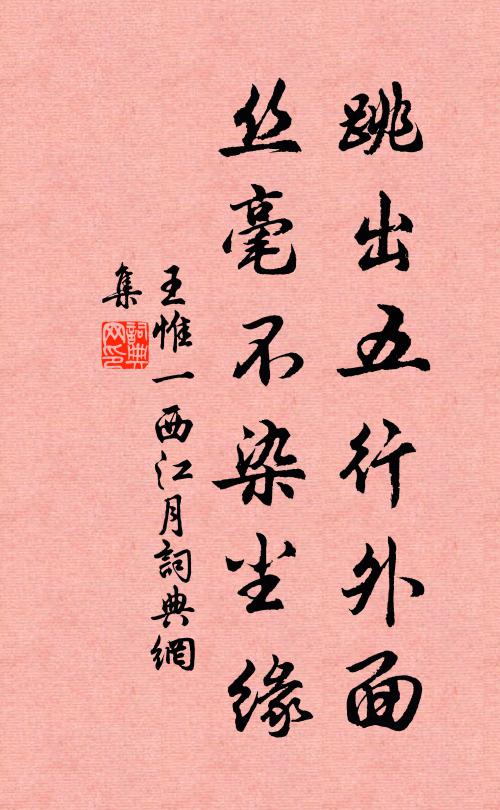 跳出五行外面
丝毫不染尘缘
王惟一西江月詞典網
集
詞典
网印